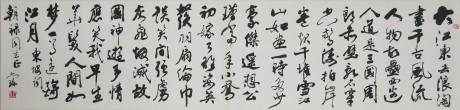 大江東去浪淘
盡千古風流
人物故壘西邊
人道是三國周
郎赤壁
千堆雪江
山如畫一時多少
豪傑遙想公
瑾當年小喬
初嫁了雄姿英
發羽扇綸巾
談笑間強虜
灰飛煙滅故
國神遊多情
應笑我早生
華髮人間如
夢一尊還酹
江月 東坡詞